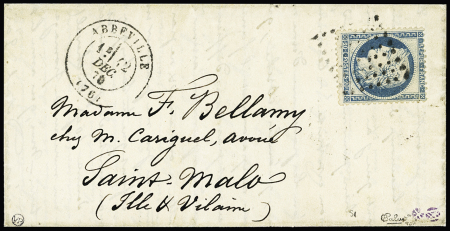 ABBEVILLE
12
DEC
70
(76)
Madame F. Bellamy
chez M. Cariguel, avoué
Saint-Malo
(Ille & Vilaine)